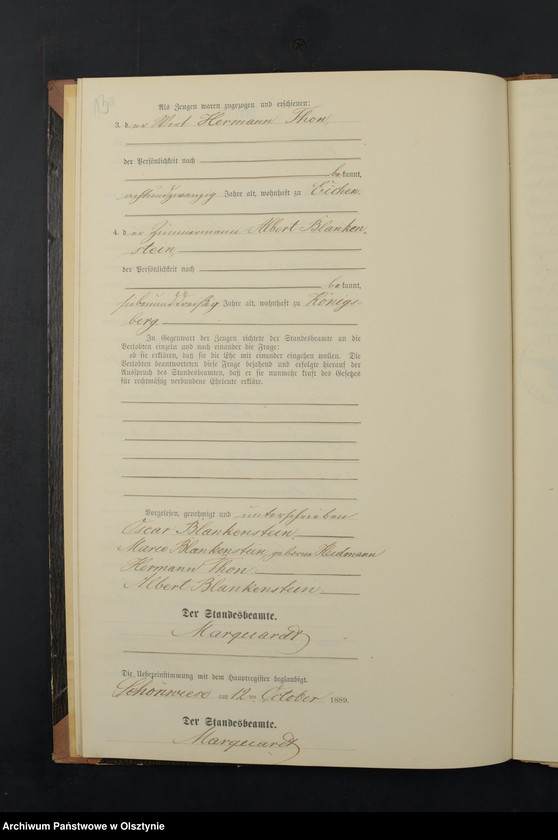 Als Zeugen waren zugezogen und erschienen:
3. d. er Wirt Hermann Thon
der Persönlichkeit nach
bekannt,
achtundzwanzig Jahre alt, wohnhaft zu Eichen
4. d. er Zimmermann Albert Blanken-
stein
der Persönlichkeit nach
bekannt,
siebenunddreißig Jahre alt, wohnhaft zu Königs-
berg
In Gegenwart der Zeugen richtete der Standesbeamte an die
Verlobten einzeln und nach einander die Frage:
ob sie erklären, daß sie die Ehe mit einander eingehen wollen. Die
Verlobten beantworteten diese Frage bejahend und erfolgte hierauf der
Ausspruch des Standesbeamten, daß er sie nunmehr kraft des Gesetzes
für rechtmäßig verbundene Eheleute erkläre.
Vorgelesen, genehmigt und unterschrieben
Oscar Blankenstein
Marie Blankenstein, geborene
Hermann Thon
Albert Blankenstein
Der Standesbeamte.
Marquardt
Die Uebereinstimmung mit dem Hauptregister beglaubigt.
Schönwiese am 12 ten October 1889.
Der Standesbeamte.
Marquardt
Archiwum Państwowe w Olsztynie